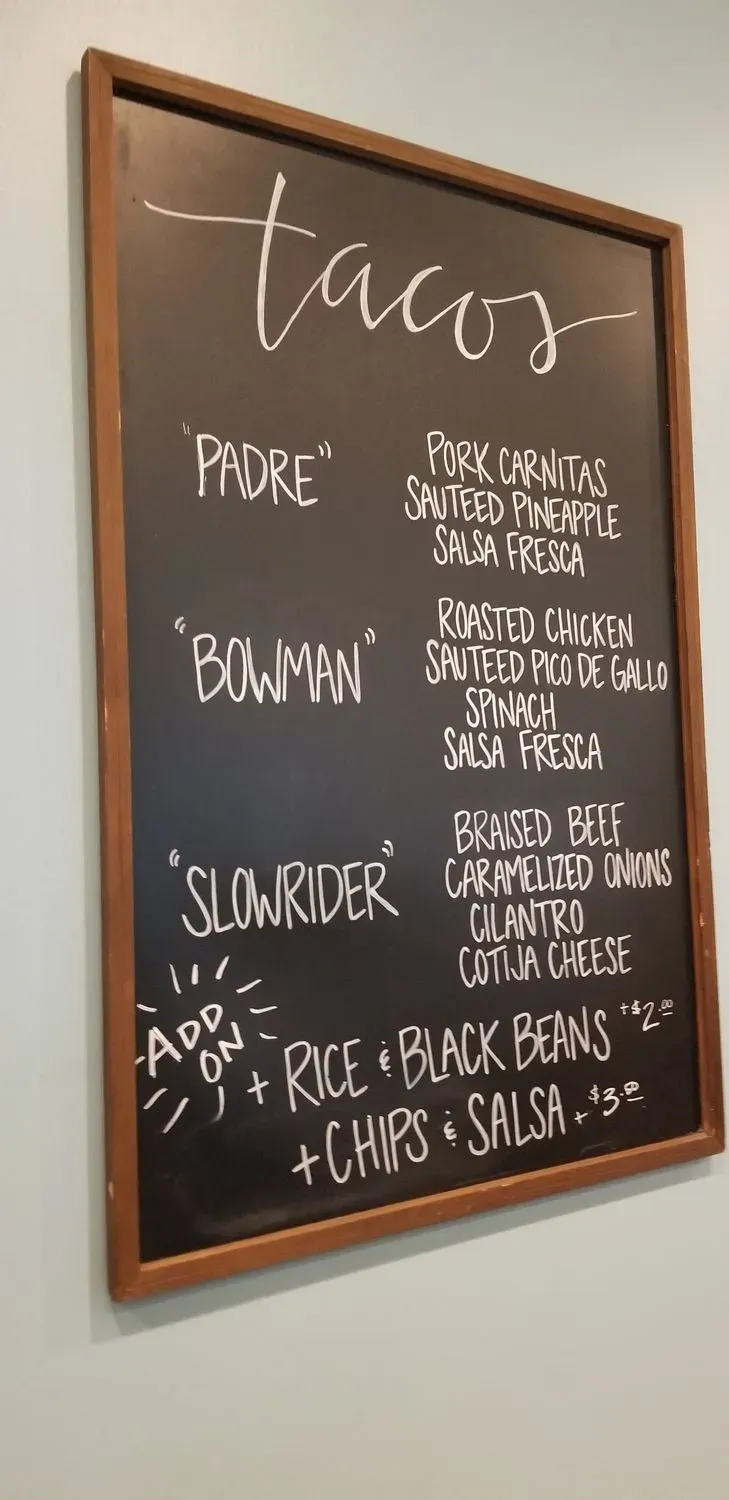 tacos
"PADRE"
PORK CARNITAS
SAUTEED PINEAPPLE
SALSA FRESCA
"BOWMAN"
ROASTED CHICKEN
SAUTEED PICO DE GALLO
SPINACH
SALSA FRESCA
"SLOWRIDER"
BRAISED BEEF
CARAMELIZED ONIONS
CILANTRO
COTIJA CHEESE
ADD
ON
+ RICE & BLACK BEANS +$2.00
+ CHIPS & SALSA + $3.00